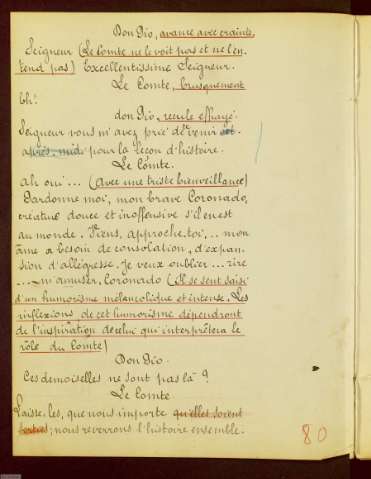 Don Gio, avance avec crainte.
Seigneur (Le Comte ne le voit pas et ne l'en-
tend pas) Excellentissime Seigneur.
Le Comte, brusquement
Eh!
don Gio, recule effrayé.
Seigneur vous m'avez prié de venir cet
après-midi pour la leçon d'histoire.
Le Comte.
Ah oui... (Avec une triste bienveillance)
Pardonne moi, mon brave Coronado,
créature douce et inoffensive s'il en est
au monde. Viens, approche-toi,.. mon
âme a besoin de consolation, d'expan-
sion d'allégresse. Je veux oublier... rire
... m'amuser, Coronado (Il se sent saisi
d'un humorisme mélancolique et intense. Les
inflexions de cet humorisme dépendront
de l'inspiration de celui qui interprétera le
rôle du Comte)
Don Gio.
Ces demoiselles ne sont pas là?
Le Comte
Laisse-les, que nous importe qu'elles soient
sorties; nous reverrons l'histoire ensemble.
80